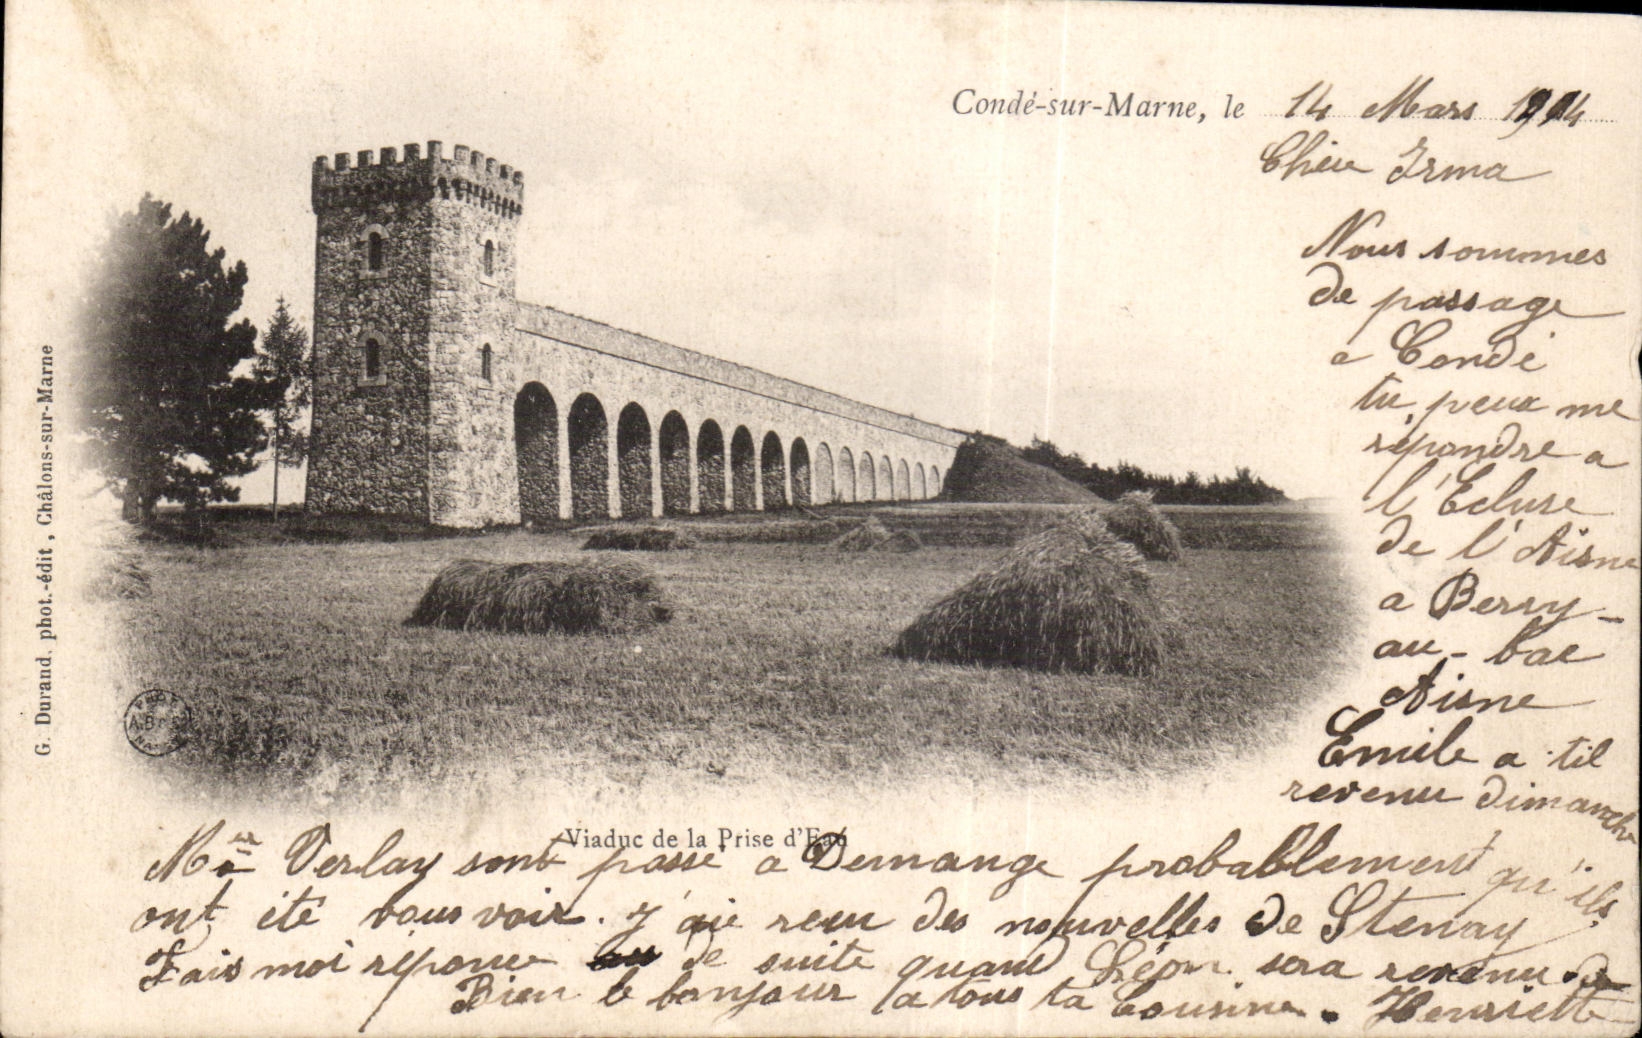 Condé-sur-Marne, le 14 Mars 1914
Chère Irma
Nous sommes
de passage
a Condé
tu peux me
répondre a
l'Ecluse
de l'Aisne
a Berry-
au-bac
Aisne
Emile a til
revenu dimanche
Viaduc de la Prise d'Eau
Verlay sont passé a Demange probablement qu'ils
ont été vous voir. J'aie reçu des nouvelles de Stenay
Fais moi réponse de suite quand Léon sera revenu
Bien le bonjour a tous ta Cousine. Henriette
G. Durand, phot.-édit, Châlons-sur-Marne